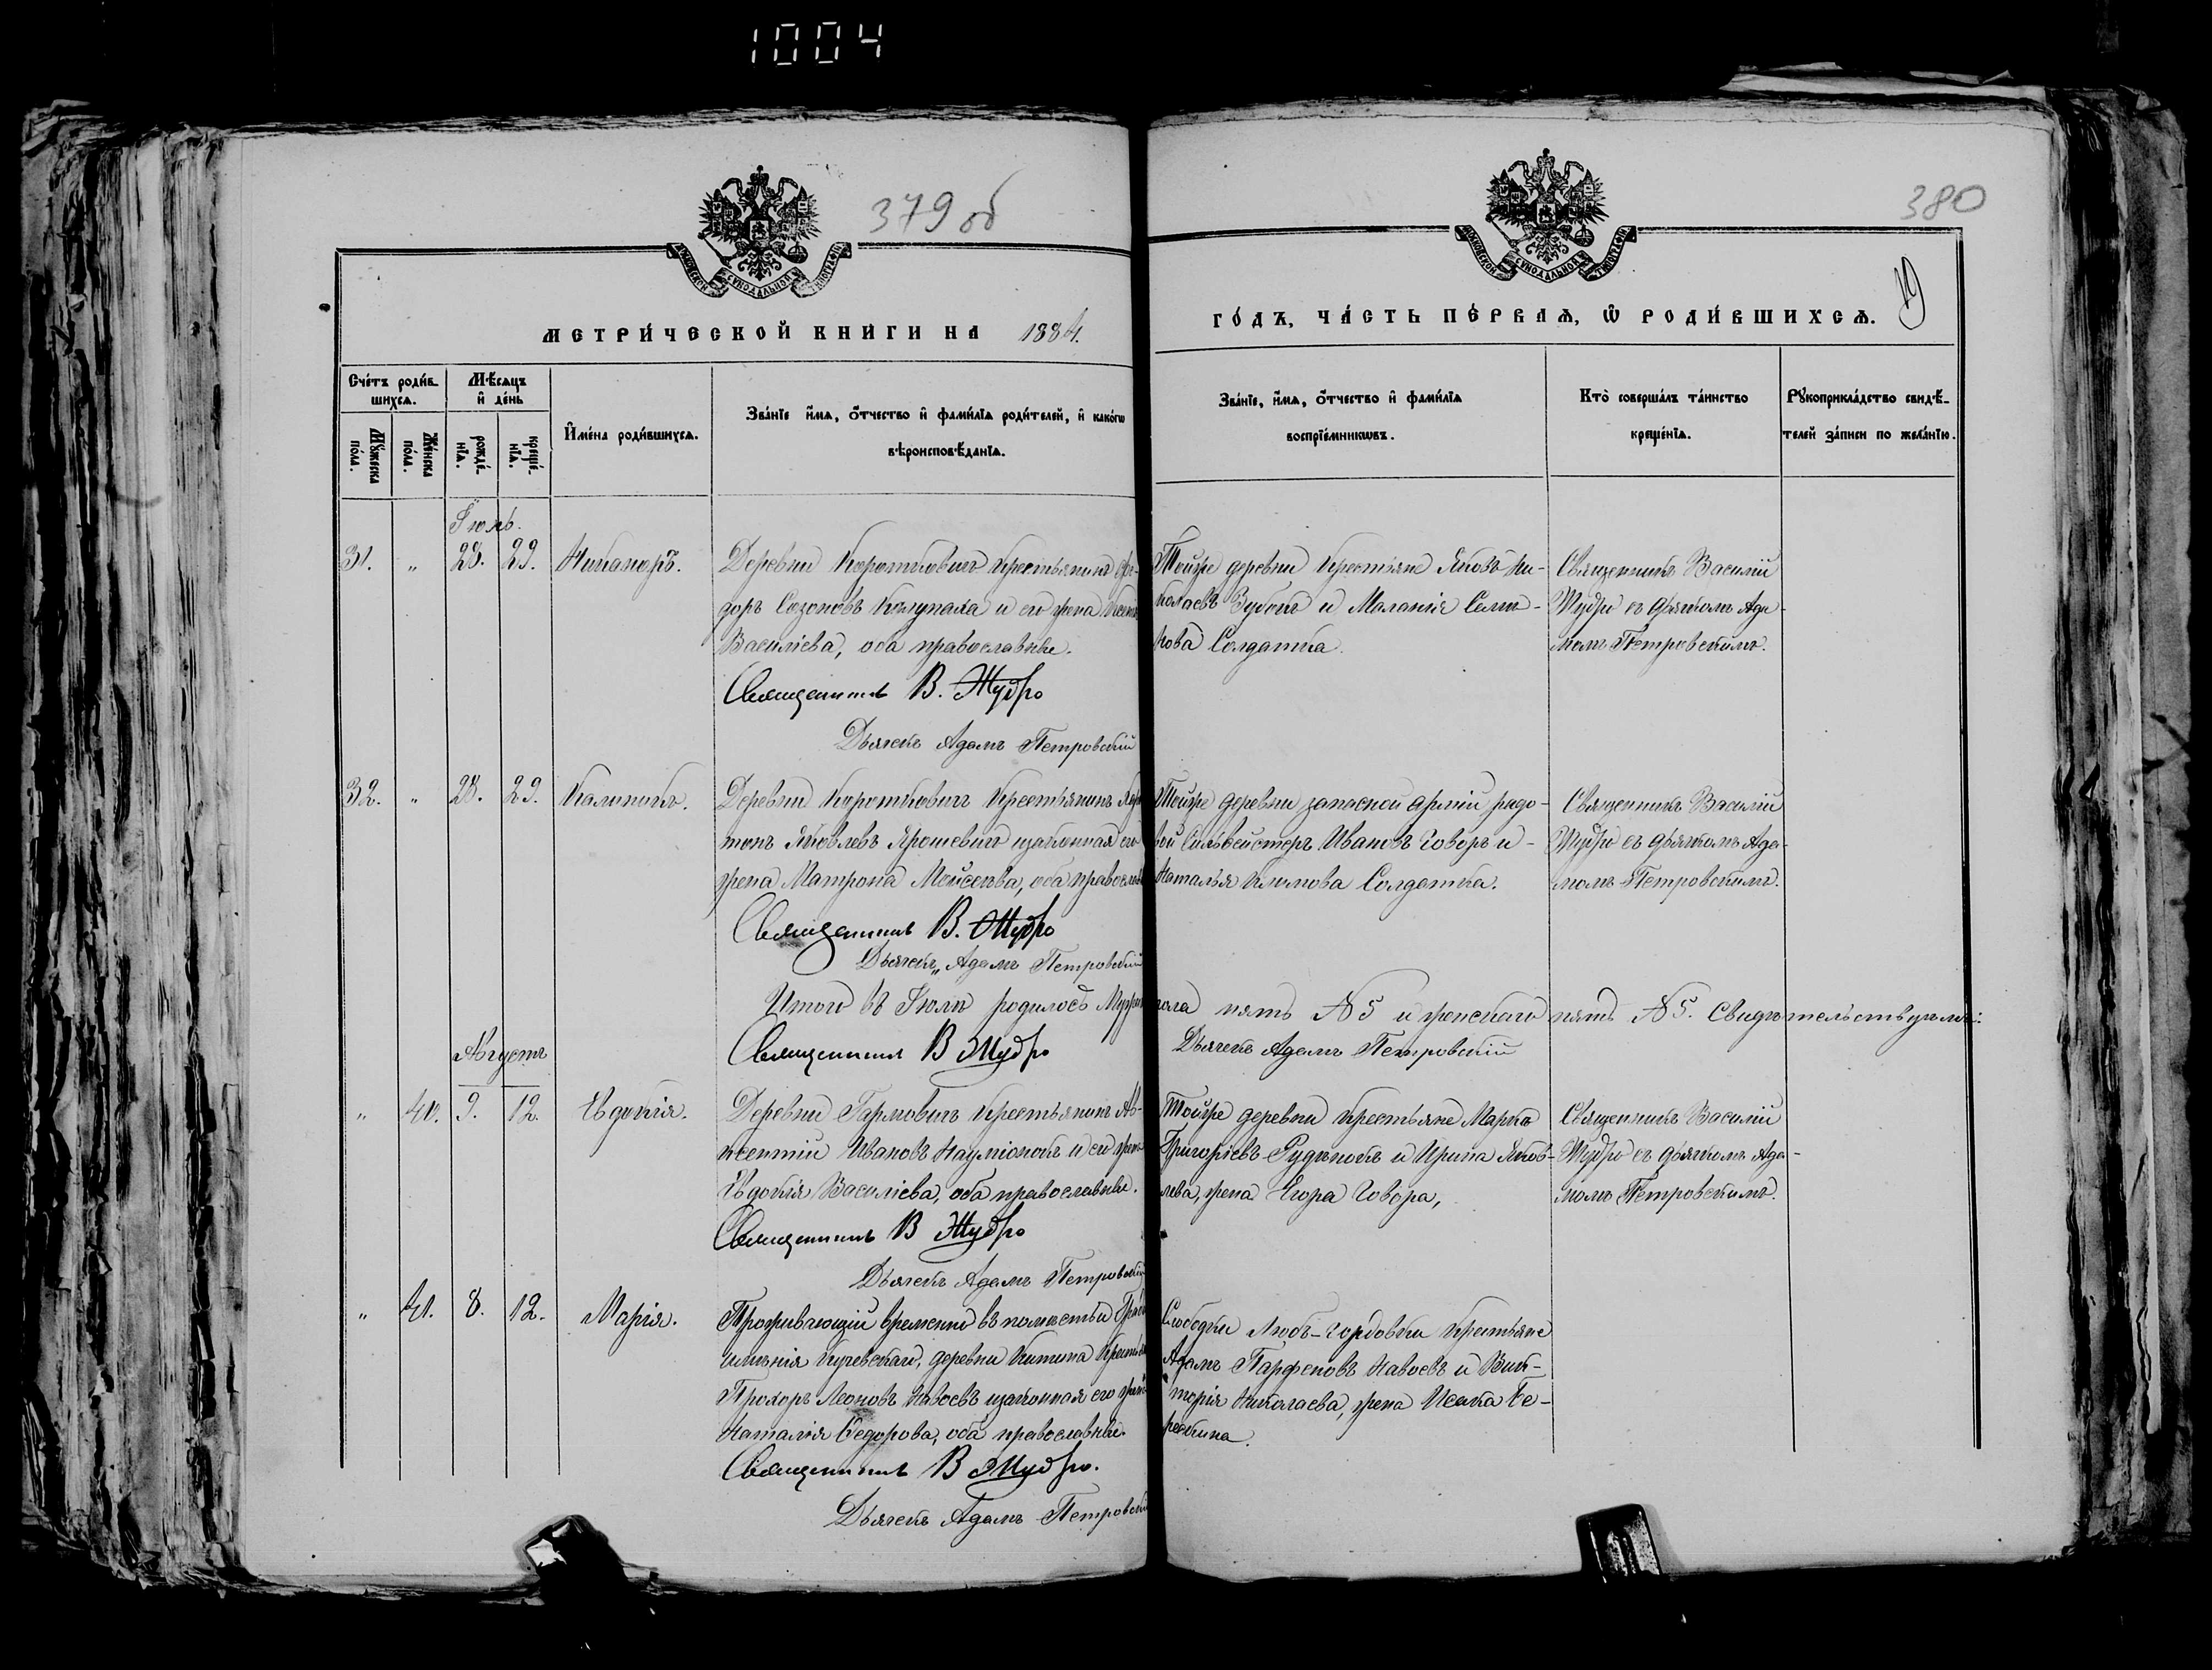 1004
379 об
380
19
МЕТРИ́ЧЕСКОЙ КНИГИ НА 1884.
ГО́ДЪ, ЧА́СТЬ ПЕ́РВАѦ, Ѿ РОДИ́ВШИХСѦ.
Сче́тъ роди́в-
шихсѧ.
Мꙋжеска по́ла.
Же́нска по́ла.
Мѣ́сѧцъ и҆ де́нь
рожде́-нїѧ.
креще́-нїѧ.
И҆мена̀ роди́вшихсѧ.
Зва́нїе и҆́мѧ, ѻ҆́тчество и҆ фами́лїѧ роди́телей, и҆ како́гѡ
вѣроисповѣ́данїѧ.
Зва́нїе, и҆́мѧ, ѻ҆́тчество и҆ фами́лїѧ
воспрїе́мникѡвъ.
Кто̀ соверша́лъ та́инство
креще́нїѧ.
Рꙋкоприкла́дство свидѣ́-
телей за́писи по жела́нїю.
Іюль.
31. „ 28. 29. Никаноръ.
Деревни Коротковичъ крестьянинъ
доръ Сазоновъ Колупаха и его жена
Василіева, оба православные.
Священникъ В. Жудро
Дьячекъ Адамъ Петровскій
Тойже деревни крестьяне Яковъ Ни-
колаевъ Зубокъ и Маланія
Солдатка.
Священникъ Василій
Жудро съ дьячкомъ Ада-
момъ Петровскимъ.
32. „ 28. 29. Калиникъ.
Деревни Коротковичъ крестьянинъ
Яковлевъ Ярошевичъ и законная его
жена Матрона Моисеева, оба православ
Священникъ В. Жудро
Дьячекъ Адамъ Петровскій
Тойже деревни запасной арміи рядо-
вой Сильвейстеръ Ивановъ Говоръ и -
Наталья Климова Солдатка.
Священникъ Василій
Жудро съ дьячкомъ Ада-
момъ Петровскимъ.
Итого въ Іюлѣ родилось Муж пола пять № 5 и женскаго пять № 5. Свидѣтельствуемъ:
Священникъ В Жудро
Дьячекъ Адамъ Петровскій
Августъ
„ 40. 9. 12. Евдокія.
Деревни Гармовичъ крестьянинъ Ав-
ксентій Ивановъ Науміонокъ и его жена
Евдокія Василіева, оба православные.
Священникъ В Жудро
Дьячекъ Адамъ Петровскій
Тойже деревни крестьяне Марко
Григоріевъ Рудѣнокъ и Ирина Яков-
лева, жена Егора Говора,
Священникъ Василій
Жудро съ дьячкомъ Ада-
момъ Петровскимъ.
„ 41. 8. 12. Марія.
Проживающій временно въ помѣстьи
имѣнія деревни Китина
Прохоръ Леоновъ Навоевъ и законная его жена
Наталія Ѳедорова, оба православные.
Священникъ В Жудро.
Дьячекъ Адамъ Петровскій
Слободки крестьяне
Адамъ Парфеновъ Навоевъ и Вик-
торія Николаева, жена Исака Се-